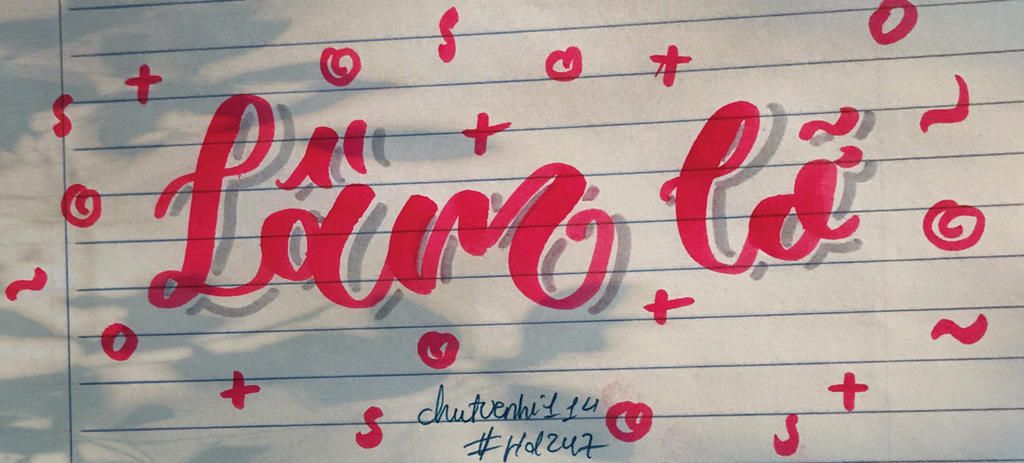 Lầm lỡ
chutvenhi114
#Hd247